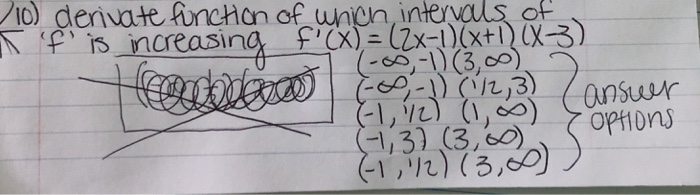 10) derivate function of which intervals of
'f' is increasing f'(x) = (2x-1)(x+1)(x-3)
(-∞,-1)(3,∞)
(-∞,-1) (1/2,3)
(-1,1/2) (1,∞)
(-1,3) (3,∞)
(-1,1/2) (3,∞)
answer
options